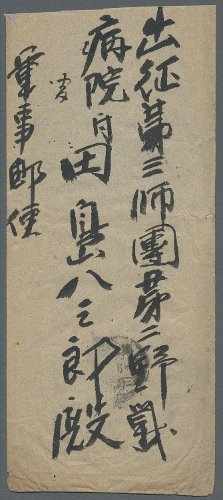 出征第三師團第二野戰
病院内
田島八三郎殿
軍事郵便